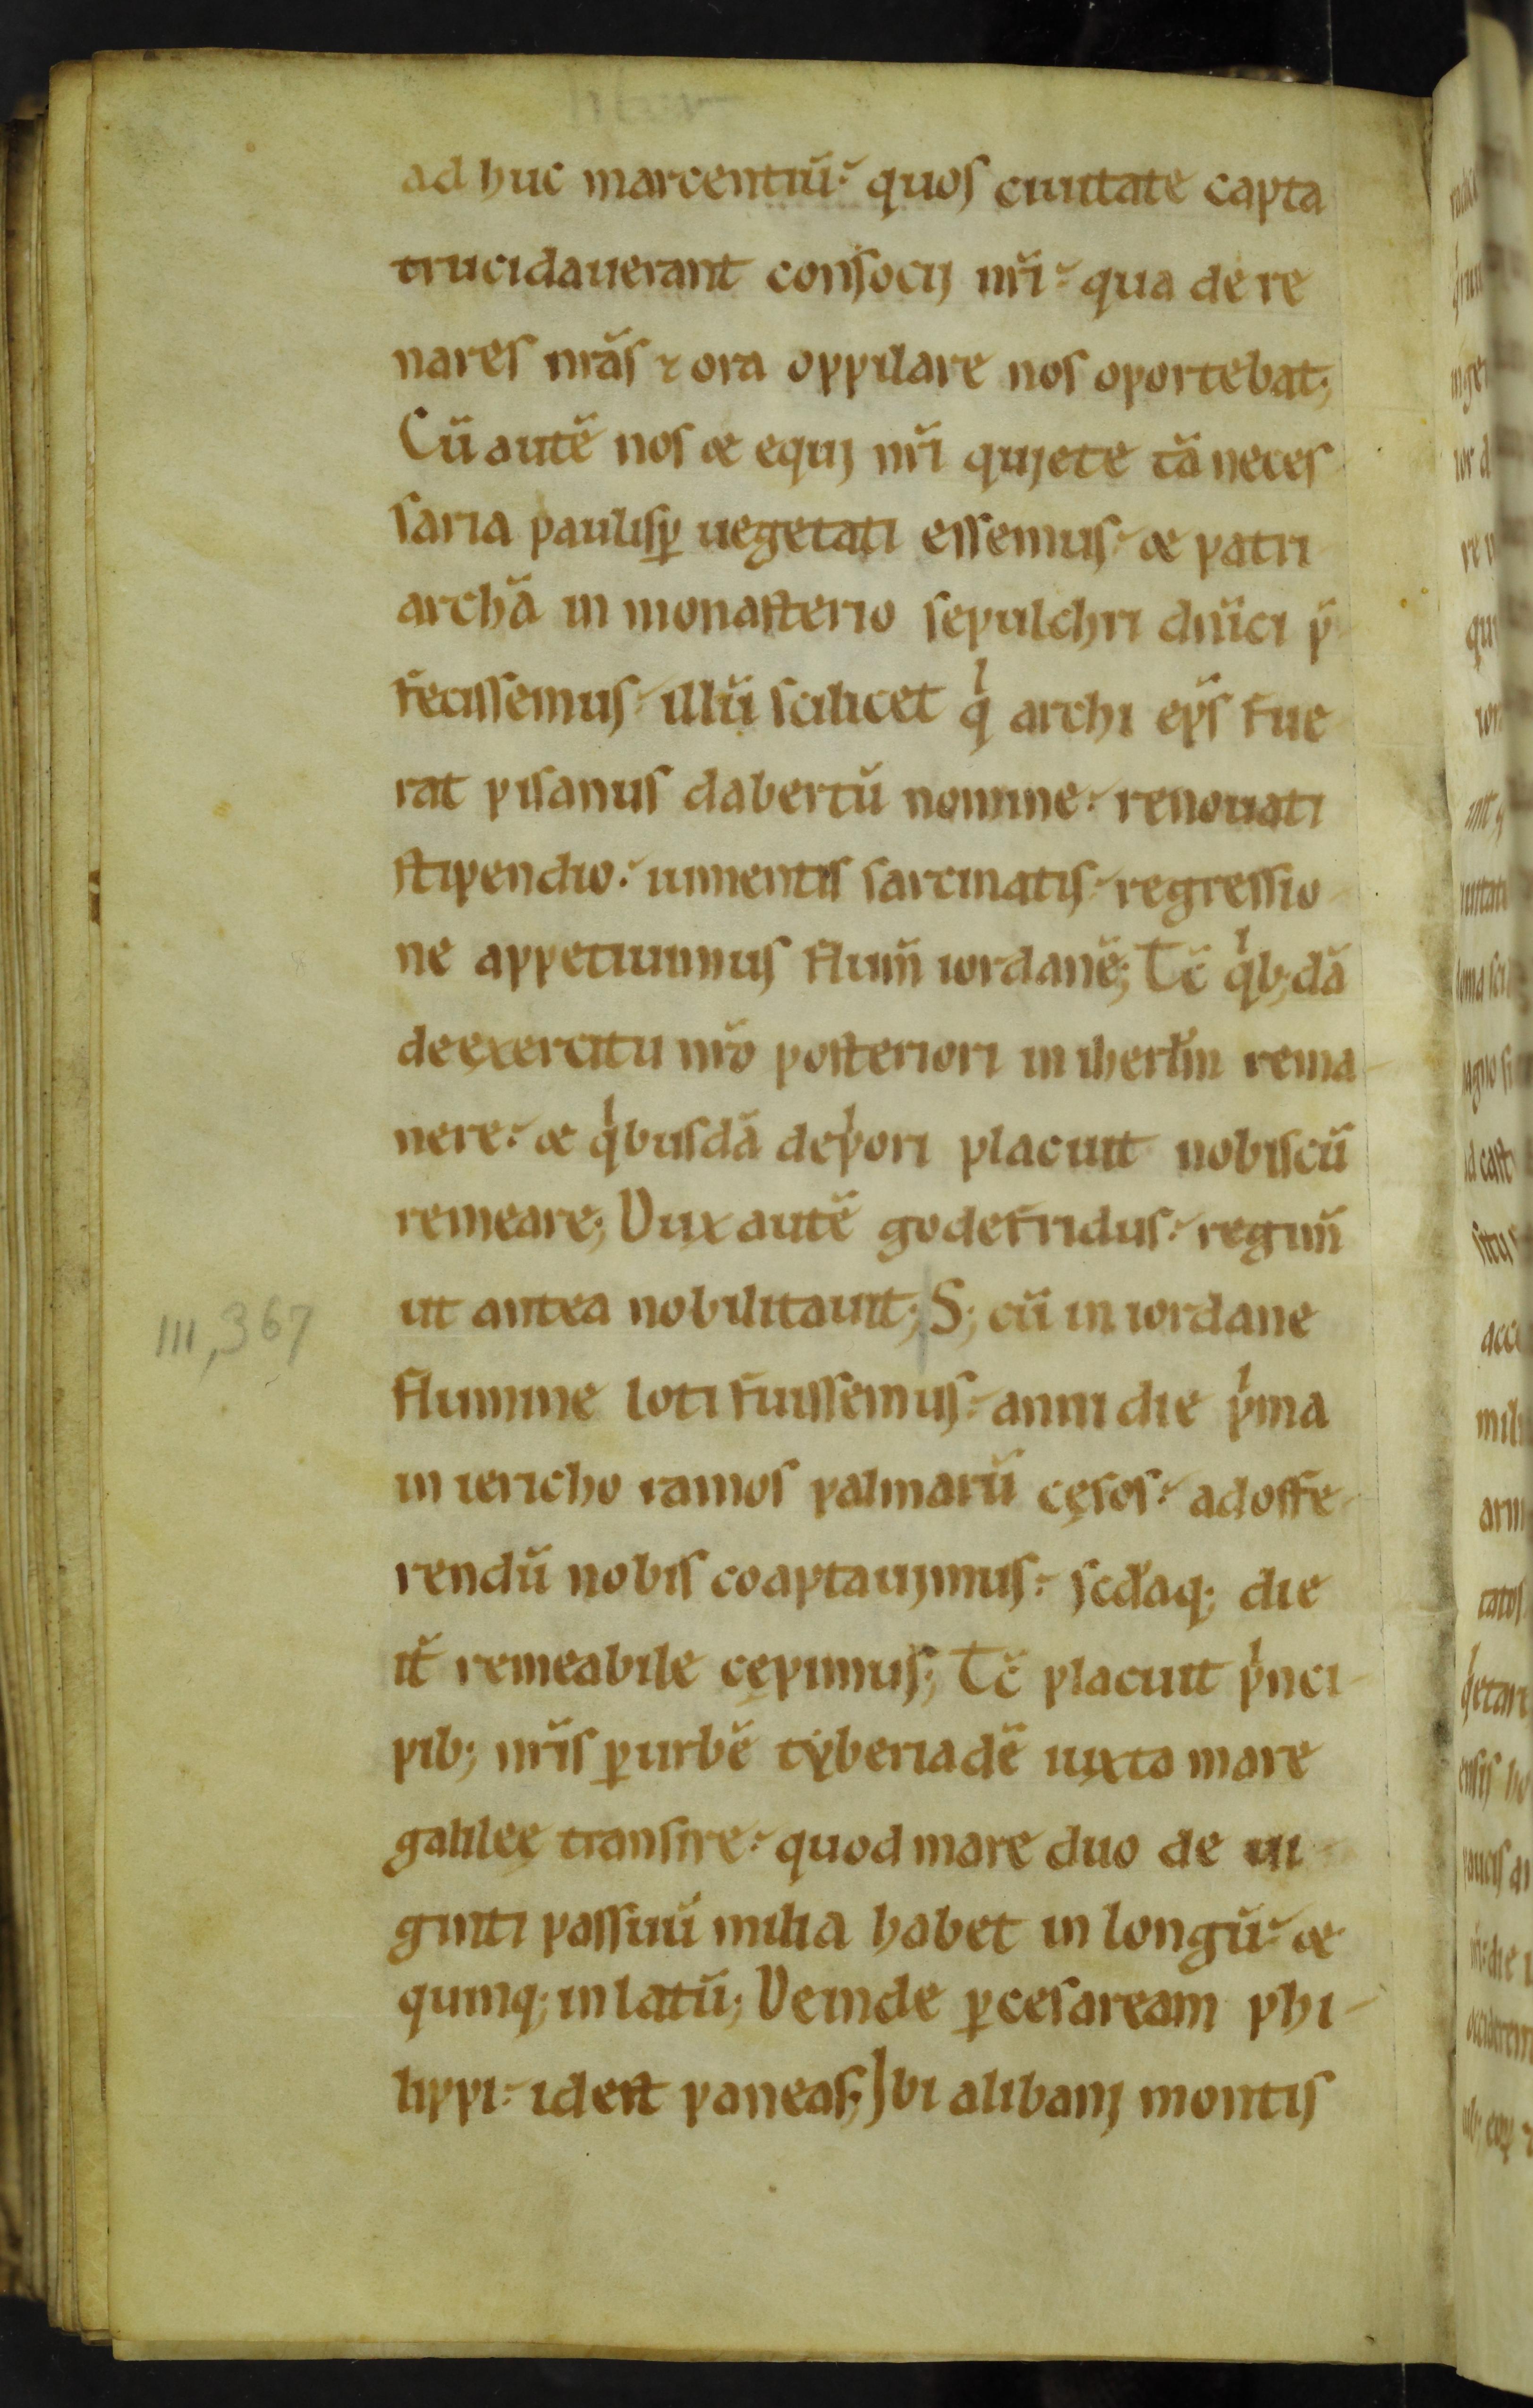 ad huc marcentiū quos ciuitate capta
trucidauerant consocij nr̄i qua de re
nares nr̄as ⁊ ora oppilare nos oportebat;
Cū autē nos & equj nr̄i qujete tā neces
saria paulisꝑ uegetati essemus & patri
archā in monasterio sepulchri dn̄ici p̄
fecissemus illū scilicet qⁱ archi ep̄s fue
rat pisanus dabertū nomine renouati
stipendio iumentis sarcinatis regressio
ne appetiuimus flum̄ iordanē; Tc̄ qⁱb;dā
de exercitu nr̄o posteriori in iherl̄m rema
nere & qⁱbusdā de pⁱori placuit nobiscū
remeare; Dux autē godefridus regim̄
ut antea nobilitauit; S; cū in iordane
III,367
flumine loti fuissemus anni die pⁱma
in iericho ramos palmarū cęsos ad offe
rendū nobis coaptaujmus sc̄daq; die
it̄ remeabile cępimus; Tc̄ placuit pⁱnci
pib; nr̄is ꝑ urbē tẏberiadē iuxta mare
galileę transire quod mare duo de ui
ginti passuū milia habet in longū &
quinq; in latū; Deinde ꝑ cesaream phi
lippi idest paneas; Jbi alibanj montis